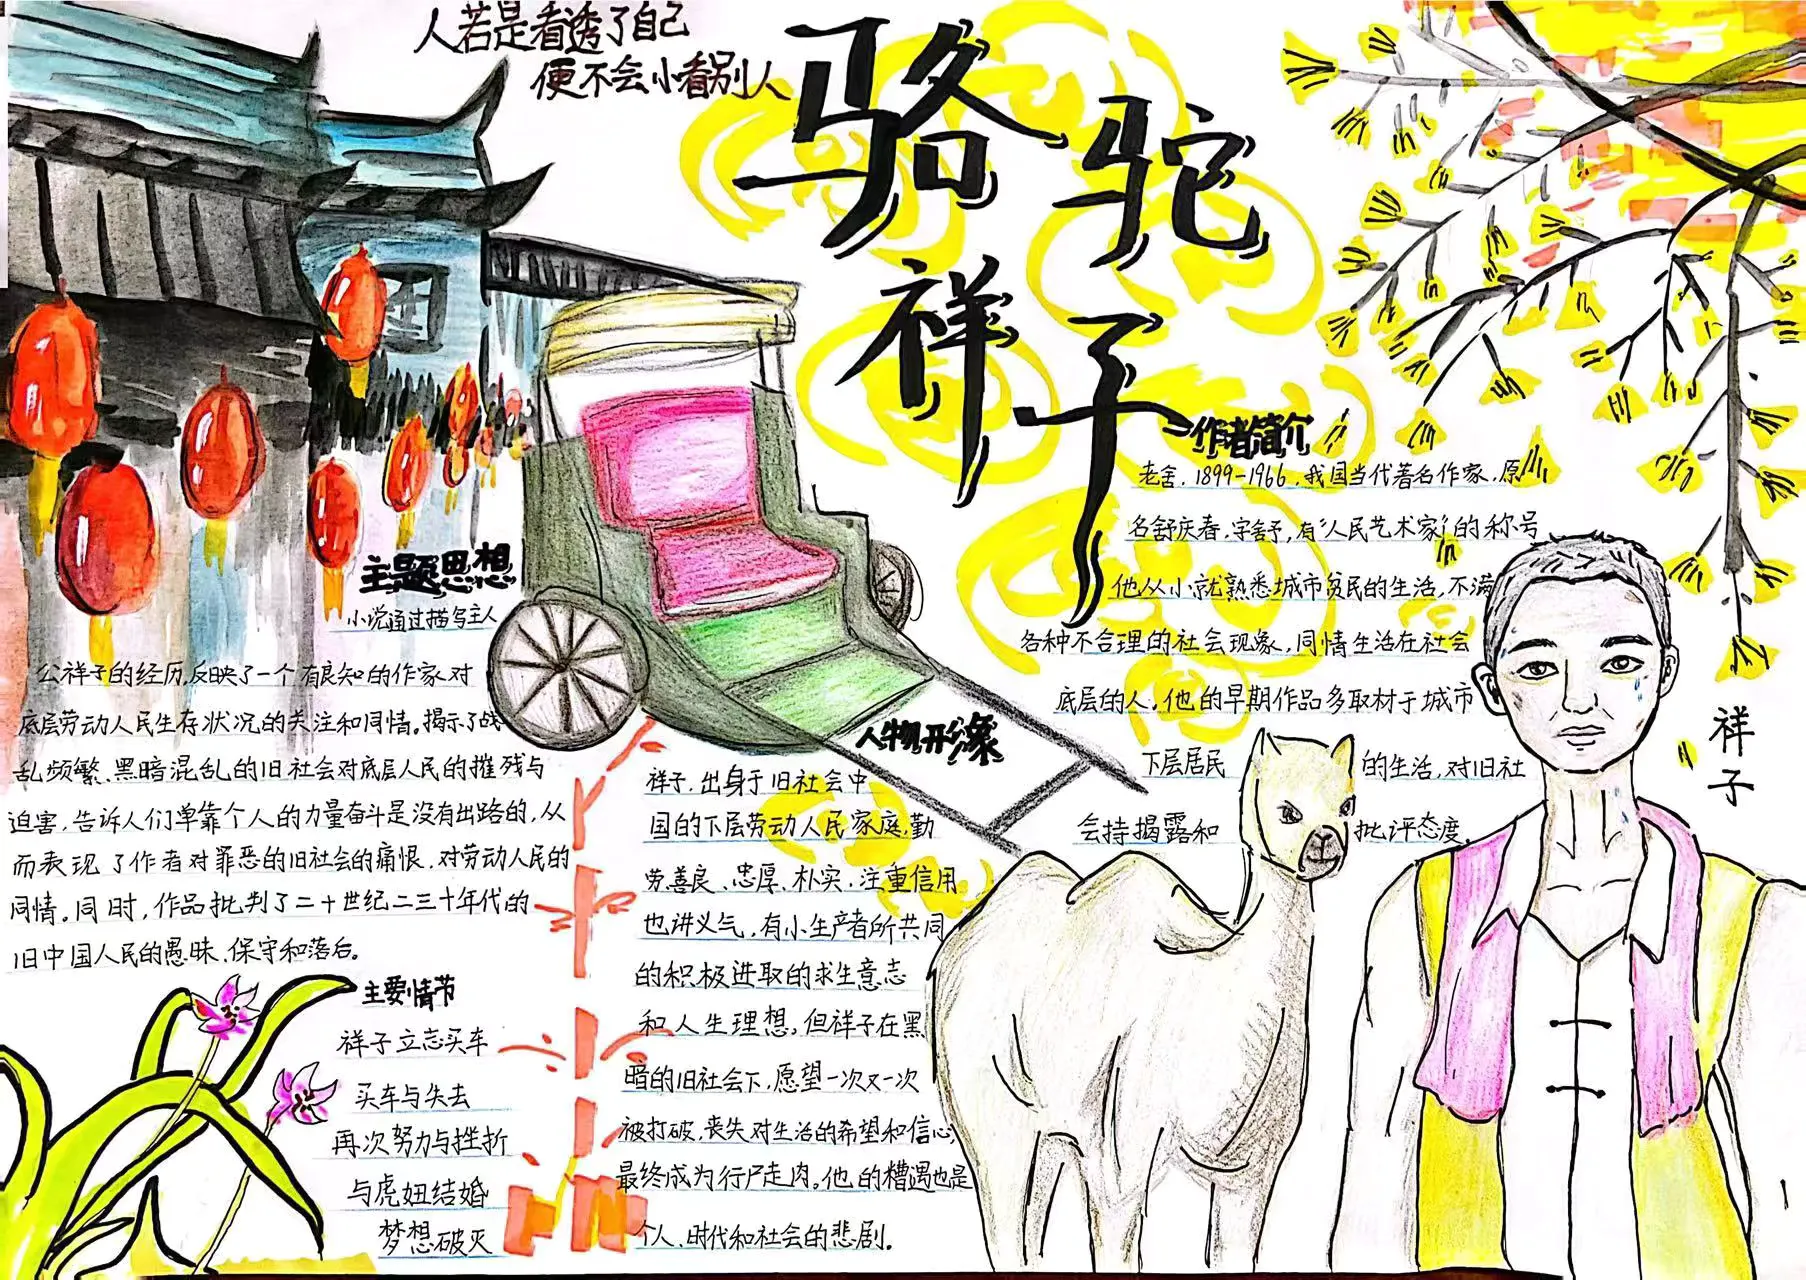 人若是看透了自己
便不会小看别人
骆驼
祥子
作者简介
老舍，1899-1966，我国当代著名作家，原
名舒庆春，字舒予，有“人民艺术家”的称号
他从小就熟悉城市贫民的生活，不满
各种不合理的社会现象，同情生活在社会
底层的人。他的早期作品多取材于城市
下层居民的生活，对旧社
会持揭露和批评态度。
祥子
主题思想
小说通过描写主人
公祥子的经历，反映了一个有良知的作家对
底层劳动人民生存状况的关注和同情。揭示了战
乱频繁、黑暗混乱的旧社会对底层人民的摧残与
迫害，告诉人们单靠个人的力量奋斗是没有出路的，从
而表现了作者对罪恶的旧社会的痛恨，对劳动人民的
同情。同时，作品批判了二十世纪二三十年代的
旧中国人民的愚昧、保守和落后。
主要情节
祥子立志买车
买车与失去
再次努力与挫折
与虎妞结婚
梦想破灭
人物形象
祥子，出身于旧社会中
国的下层劳动人民家庭，勤
劳善良、忠厚、朴实，注重信用
也讲义气，有小生产者所共同
的积极进取的求生意志
和人生理想，但祥子在黑
暗的旧社会下，愿望一次又一次
被打破，丧失对生活的希望和信心，
最终成为行尸走肉。他的遭遇也是
个人、时代和社会的悲剧。